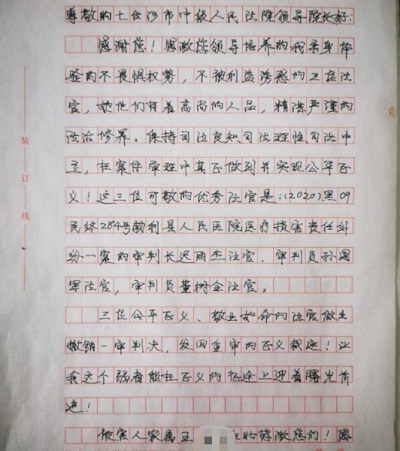 尊敬的七台河市中级人民法院领导院长好:
感谢您!感激您领导培养的我亲身体
验的不畏惧权势,不被利益诱惑的三位法
官,她他们有着高尚的人品,精湛严谨的
法治修养。保持司法良知司法理性司法中
立,在案件审理中真正做到并实现公平正
义!这三位可敬的优秀法官是:(2020)黑09
民终284号勃利县人民医院医疗损害责任纠
纷一案的审判长迟丽杰法官、审判员孙国
军法官,审判员董树全法官。
三位公平正义、敬业如命的法官做出
撤销一审判决,发回重审的正义裁定!让
我这个弱者能在正义的征途上迎着曙光前
进!
被害人家属王 在此恭敬感激您们!愿
装订线